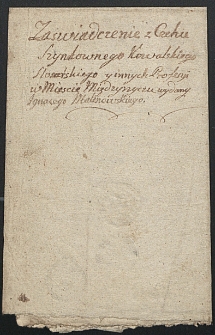 Zaswiadczenie z Cechu
Szynkownego Kowalskiego
Slosarskiego y innych Profesji
w Miescie Międzyrzycu wydany
Ignacego Malinowskiego.